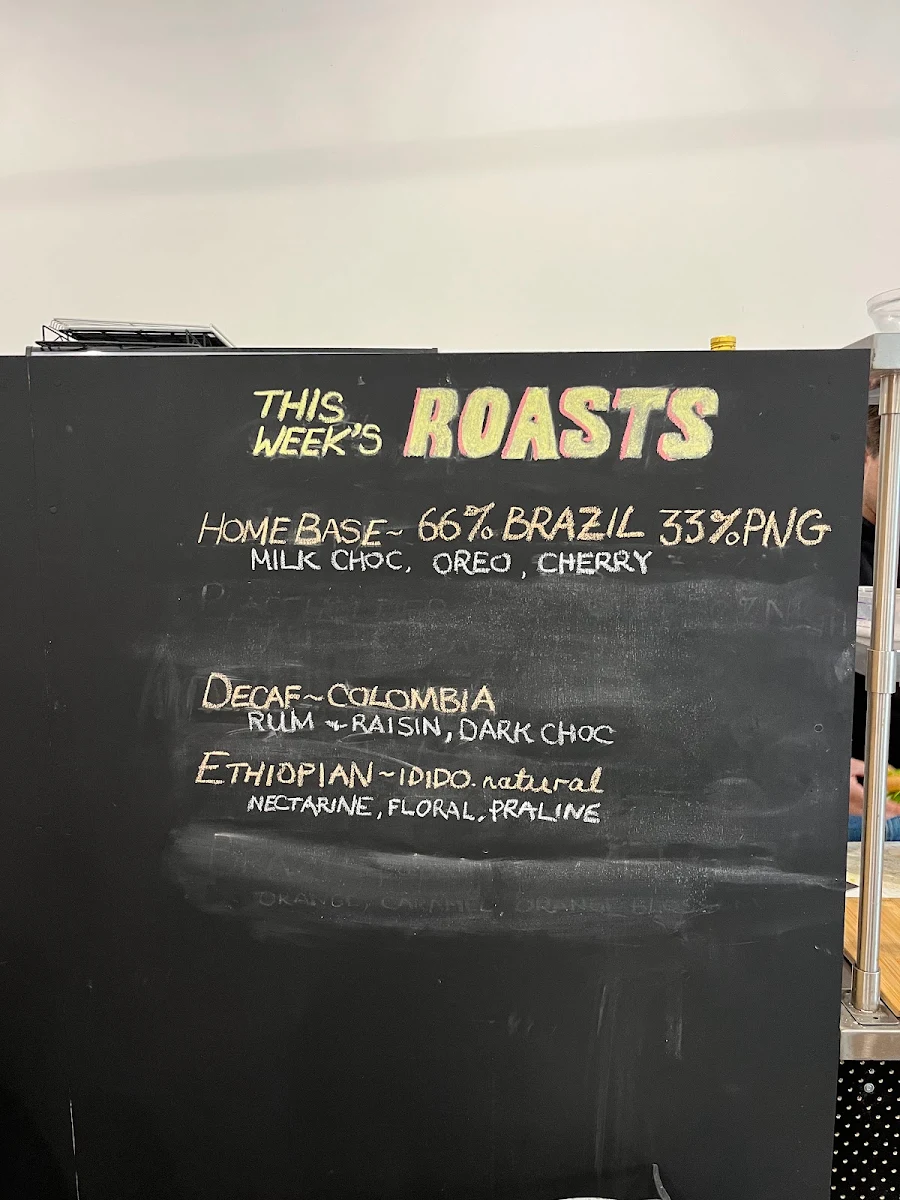 THIS
WEEK'S ROASTS
HOME BASE~ 66% BRAZIL 33% PNG
MILK CHOC, OREO, CHERRY
DECAF~COLOMBIA
RUM ~ RAISIN, DARK CHOC
ETHIOPIAN~IDIDO. natural
NECTARINE, FLORAL, PRALINE
ORANGE, CARAMEL ORANGE